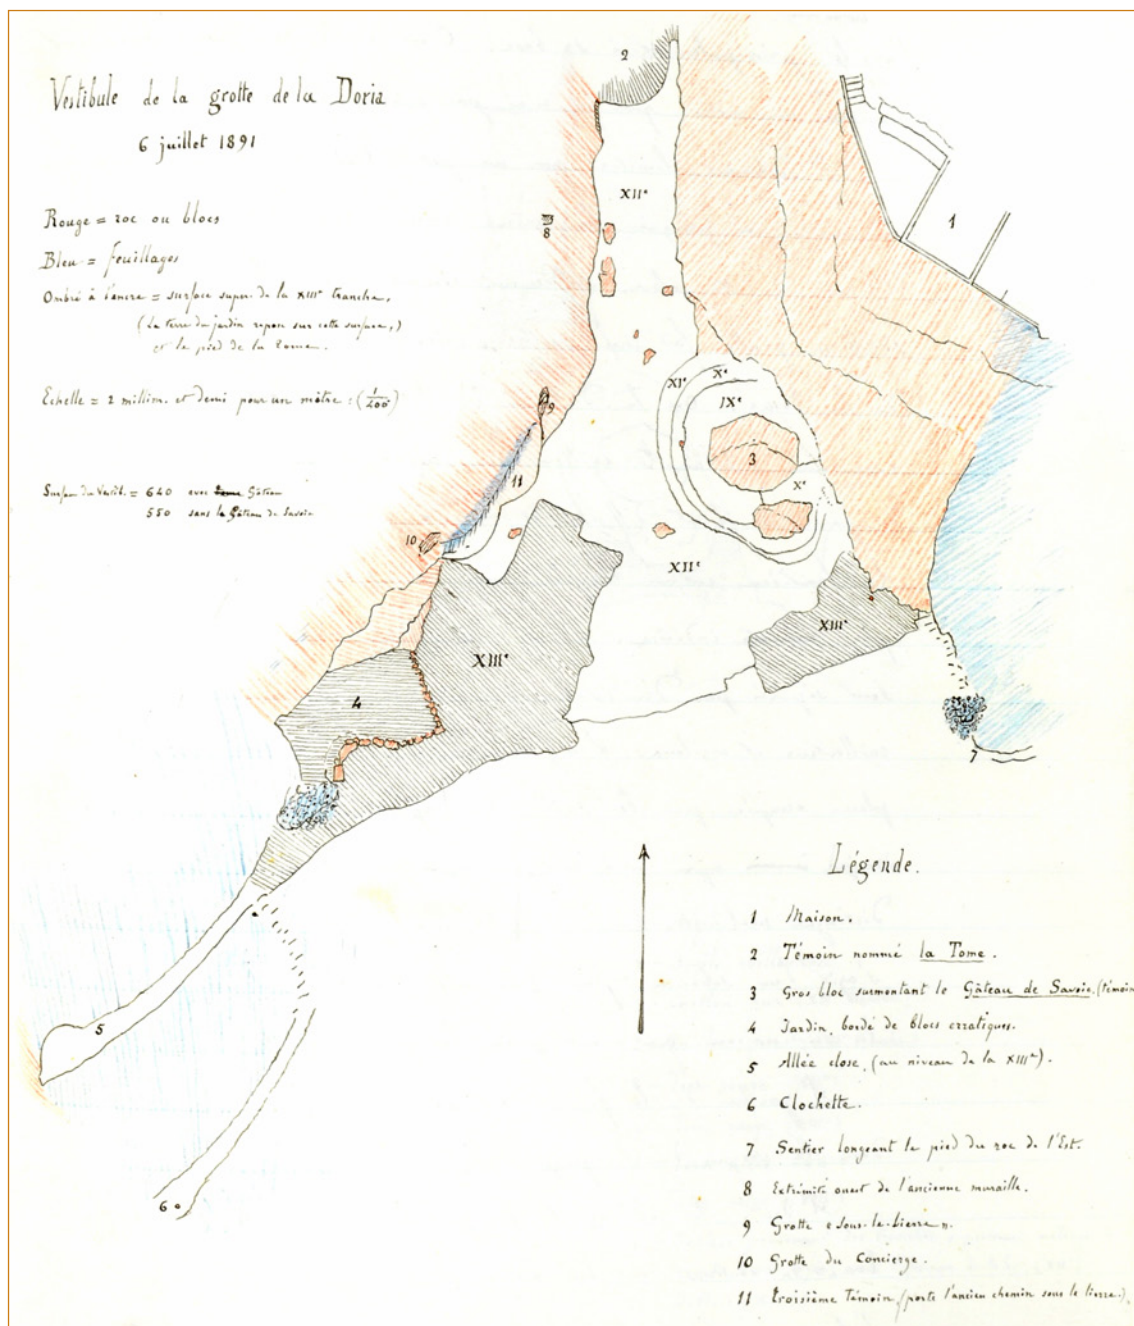 Vestibule de la grotte de la Doria
6 juillet 1891
Rouge = roc ou blocs
Bleu = feuillages
Ombré à l'encre = surface super. de la XIIIe tranche,
(La terre du jardin repose sur cette surface,)
et le pied de la Tome.
Echelle = 2 millim. et demi pour un mètre : (1/400)
Surface du Vestib. = 640 avec Gâteau
550 sans le Gâteau de Savoie
2
XIIe
8
1
XIe
Xe
IXe
9
3
11
Xe
10
XIIe
XIIIe
XIIIe
4
7
5
6
Légende.
1 Maison.
2 Témoin nommé la Tome.
3 Gros bloc surmontant le Gâteau de Savoie. (témoin
4 Jardin, bordé de blocs erratiques.
5 Allée close, (au niveau de la XIIIe).
6 Clochette.
7 Sentier longeant le pied du roc de l'Est.
8 Extrémité ouest de l'ancienne muraille.
9 Grotte « sous-le-lierre ».
10 Grotte du Concierge.
11 Troisième Témoin, (porte l'ancien chemin sous le lierre.)